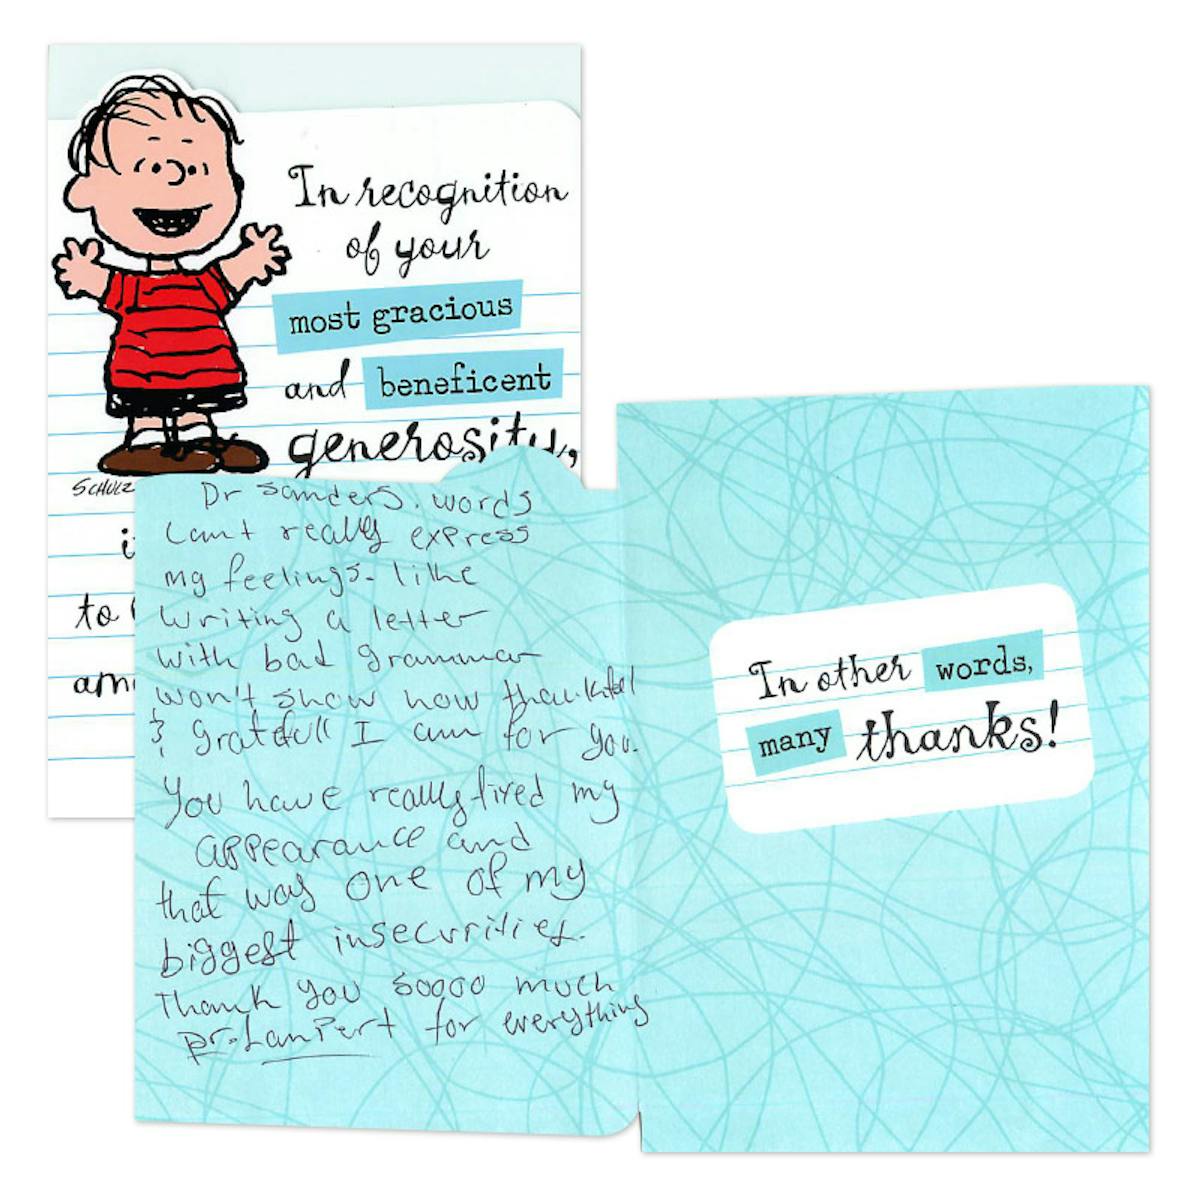 In recognition
of your
most gracious
and beneficent
generosity,
SCHULZ
i
to
am
Dr Sanders. words
Can't really express
my feelings. like
writing a letter
with bad grammar
won't show how thankful
& gratefull I am for you.
You have really fixed my
appearance and
that was one of my
biggest insecurities.
Thank you soooo much
Dr. Lanpert for everything
In other words,
many thanks!